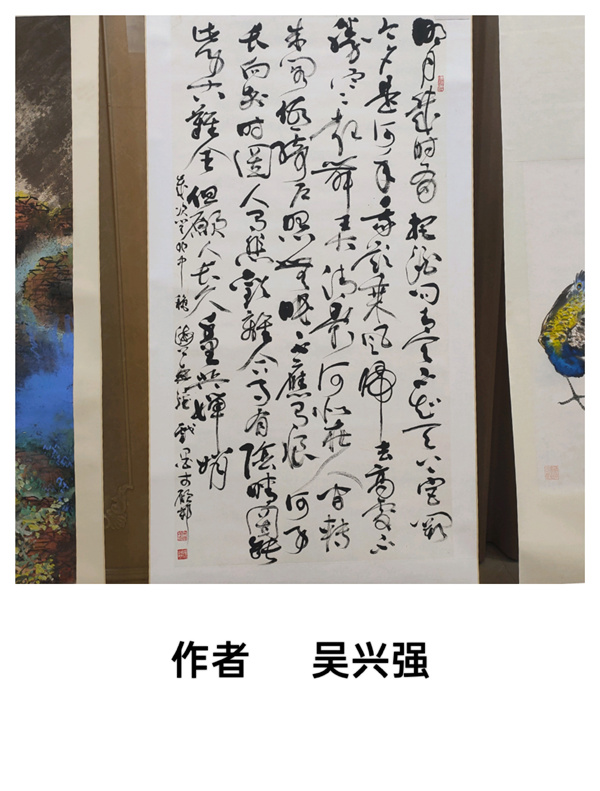 明月幾时有把酒问青天不知天上宫阙
今夕是何年我欲乘风归去高處不
勝寒起舞弄清影何似在人间轉
朱阁低绮户照無眠不應有恨何事
长向别时圆人有悲歡離合月有陰晴圆缺
此事古難全但願人长久千里共嬋娟
作者 吴兴强